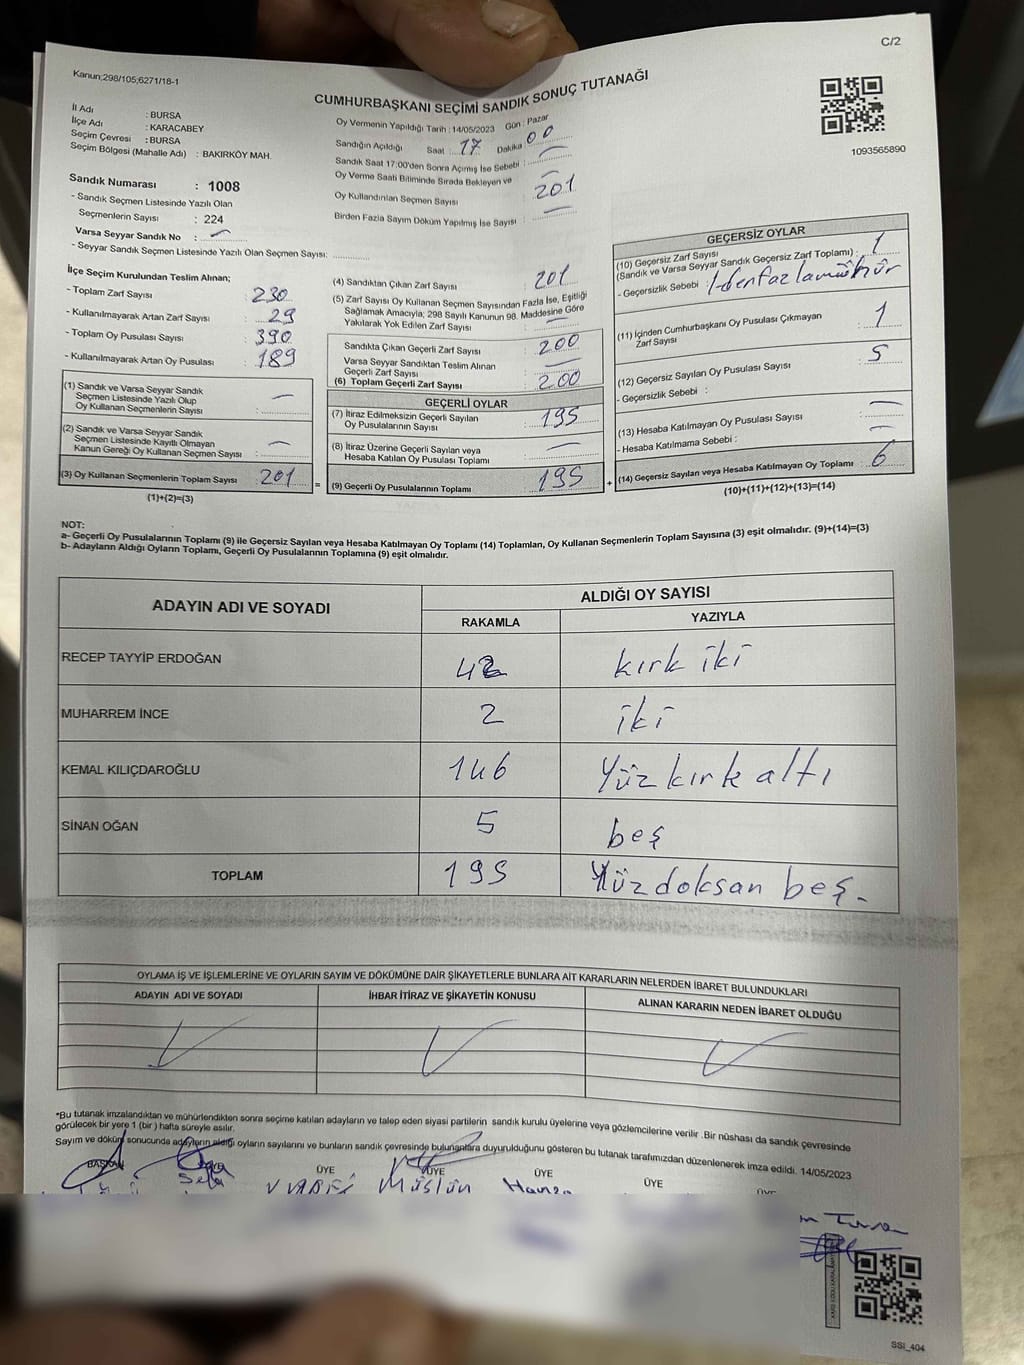 C/2
Kanun;298/105;6271/18-1
CUMHURBAŞKANI SEÇİMİ SANDIK SONUÇ TUTANAĞI
1093565890
İl Adı : BURSA
İlçe Adı : KARACABEY
Seçim Çevresi : BURSA
Seçim Bölgesi (Mahalle Adı) : BAKIRKÖY MAH.
Oy Vermenin Yapıldığı Tarih : 14/05/2023 Gün : Pazar
Sandığın Açıldığı Saat : 17 Dakika : 00
Sandık Saat 17:00'den Sonra Açımış İse Sebebi : —
Oy Verme Saati Bitiminde Sırada Bekleyen ve
Oy Kullandırılan Seçmen Sayısı : 201
Birden Fazla Sayım Döküm Yapılmış İse Sayısı : —
Sandık Numarası : 1008
- Sandık Seçmen Listesinde Yazılı Olan
Seçmenlerin Sayısı : 224
Varsa Seyyar Sandık No : —
- Seyyar Sandık Seçmen Listesinde Yazılı Olan Seçmen Sayısı: ..............
İlçe Seçim Kurulundan Teslim Alınan;
- Toplam Zarf Sayısı : 230
- Kullanılmayarak Artan Zarf Sayısı : 29
- Toplam Oy Pusulası Sayısı : 390
- Kullanılmayarak Artan Oy Pusulası : 189
(1) Sandık ve Varsa Seyyar Sandık
Seçmen Listesinde Yazılı Olup
Oy Kullanan Seçmenlerin Sayısı : —
(2) Sandık ve Varsa Seyyar Sandık
Seçmen Listesinde Kayıtlı Olmayan
Kanun Gereği Oy Kullanan Seçmen Sayısı : —
(3) Oy Kullanan Seçmenlerin Toplam Sayısı : 201
(1)+(2)=(3)
(4) Sandıktan Çıkan Zarf Sayısı : 201
(5) Zarf Sayısı Oy Kullanan Seçmen Sayısından Fazla İse, Eşitliği
Sağlamak Amacıyla; 298 Sayılı Kanunun 98. Maddesine Göre
Yakılarak Yok Edilen Zarf Sayısı : —
Sandıkta Çıkan Geçerli Zarf Sayısı : 200
Varsa Seyyar Sandıktan Teslim Alınan
Geçerli Zarf Sayısı : —
(6) Toplam Geçerli Zarf Sayısı : 200
GEÇERLİ OYLAR
(7) İtiraz Edilmeksizin Geçerli Sayılan
Oy Pusulalarının Sayısı : 195
(8) İtiraz Üzerine Geçerli Sayılan veya
Hesaba Katılan Oy Pusulası Toplamı : —
= (9) Geçerli Oy Pusulalarının Toplamı : 195
GEÇERSİZ OYLAR
(10) Geçersiz Zarf Sayısı
(Sandık ve Varsa Seyyar Sandık Geçersiz Zarf Toplamı) : 1
- Geçersizlik Sebebi : 1-den fazla mühür
(11) İçinden Cumhurbaşkanı Oy Pusulası Çıkmayan
Zarf Sayısı : 1
(12) Geçersiz Sayılan Oy Pusulası Sayısı : 5
- Geçersizlik Sebebi :
(13) Hesaba Katılmayan Oy Pusulası Sayısı : —
- Hesaba Katılmama Sebebi : —
+ (14) Geçersiz Sayılan veya Hesaba Katılmayan Oy Toplamı : 6
(10)+(11)+(12)+(13)=(14)
NOT:
a- Geçerli Oy Pusulalarının Toplamı (9) ile Geçersiz Sayılan veya Hesaba Katılmayan Oy Toplamı (14) Toplamları, Oy Kullanan Seçmenlerin Toplam Sayısına (3) eşit olmalıdır. (9)+(14)=(3)
b- Adayların Aldığı Oyların Toplamı, Geçerli Oy Pusulalarının Toplamına (9) eşit olmalıdır.
ADAYIN ADI VE SOYADI ALDIĞI OY SAYISI
RAKAMLA YAZIYLA
RECEP TAYYİP ERDOĞAN 42 kırk iki
MUHARREM İNCE 2 iki
KEMAL KILIÇDAROĞLU 146 Yüz kırk altı
SİNAN OĞAN 5 beş
TOPLAM 195 Yüzdoksan beş.
OYLAMA İŞ VE İŞLEMLERİNE VE OYLARIN SAYIM VE DÖKÜMÜNE DAİR ŞİKAYETLERLE BUNLARA AİT KARARLARIN NELERDEN İBARET BULUNDUKLARI
ADAYIN ADI VE SOYADI İHBAR İTİRAZ VE ŞİKAYETİN KONUSU ALINAN KARARIN NEDEN İBARET OLDUĞU
*Bu tutanak imzalandıktan ve mühürlendikten sonra seçime katılan adayların ve talep eden siyasi partilerin sandık kurulu üyelerine veya gözlemcilerine verilir .Bir nüshası da sandık çevresinde
görülecek bir yere 1 (bir ) hafta süreyle asılır.
Sayım ve döküm sonucunda adayların aldığı oyların sayılarını ve bunların sandık çevresinde bulunanlara duyurulduğunu gösteren bu tutanak tarafımızdan düzenlenerek imza edildi. 14/05/2023
BAŞKAN ÜYE ÜYE ÜYE ÜYE
SSİ_404